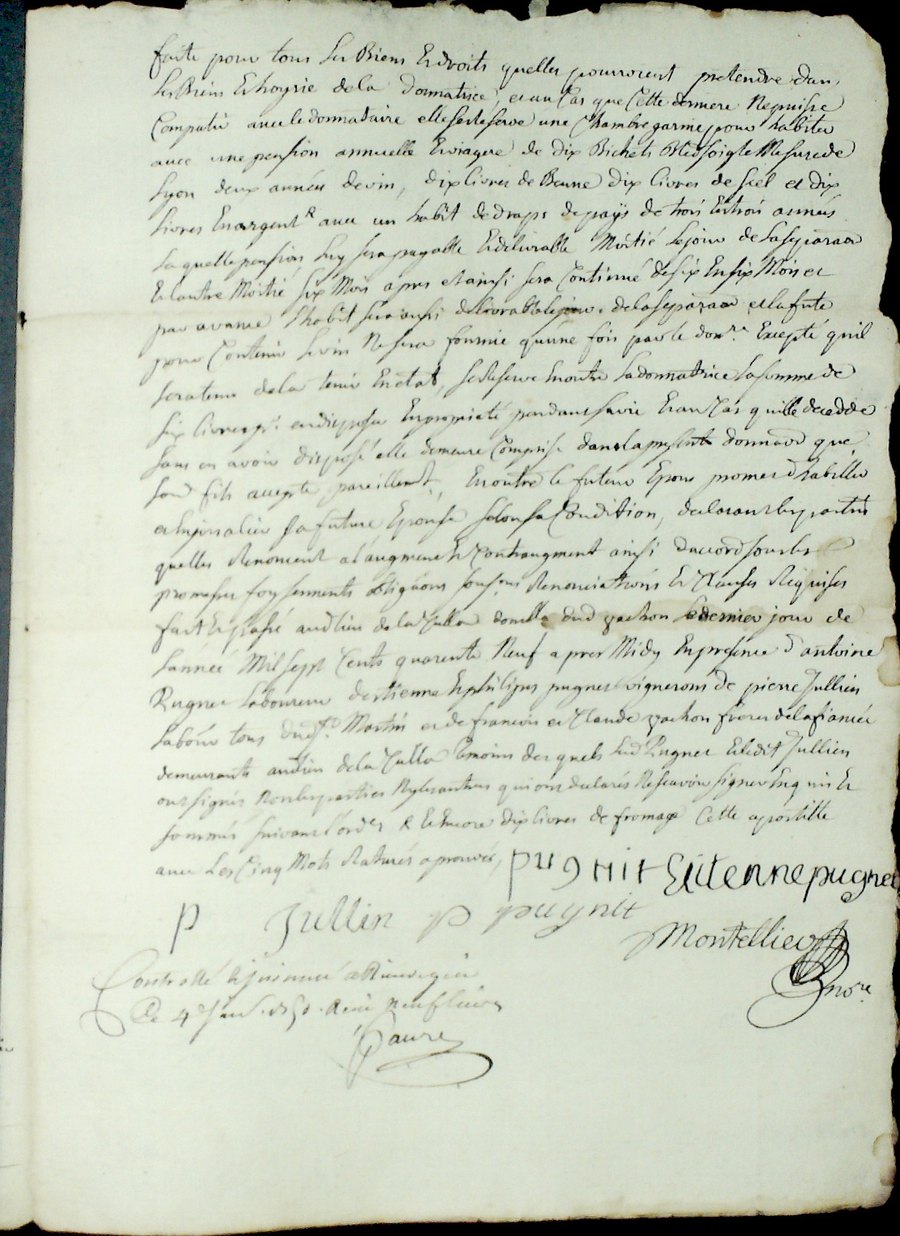 faite pour tous les Biens et droits quelles pourroient pretendre dans
les Biens et hoyrie de la donnatrice, et au Cas que Cette derniere Ne puisse
Compatir avec le donnataire elle se reserve une Chambre garnie pour habiter
avec une pension annuelle Et viagere de dix Bichets Bled soigle Mesure de
Lyon deux années de vin, dix livres de Beurre dix livres de siel et dix
livres En argent avec un habit de draps de païs de trois En trois années
Laquelle pension luy sera payable Et delivrable Moitié le jour de la separaon
Et lautre Moitié six Mois apres et ainsi sera Continué de six En six Mois et
par avance lhabit sera aussi delivrable le jour de la separaon et la fute
pour Contenir le vin Ne sera fournie qu'une fois par le donre. Excepté quil
sera tenu de la tenir En etat, se Reserve Enoutre la donnatrice la somme de
six livres pr. en disposer En proprieté pendant sa vie Et au Cas quelle decedde
sans en avoir disposé elle demeure Comprise dans la presente donnaon que
son fils accepte pareillement, Enoutre le futeur Epoux promet d'habiller
et Enjoialier sa future Epouse selon sa Condition, declarant les parties
quelles Renoncent a l'augment Et Contraugment ainsi D'accord sous les
promesses foy serments obligaons Renonciations Et Clauses Requises
fait Et passé audt lieu de la Culla domlle dud vachon le dernier jour de
l'année Mil sept Cents quarente Neuf apres Midy En presence d'antoine
Pugnet Laboureur destienne Et philipes pugnet vignerons de pierre Jullien
Labour tous dudt. St. Martin et de francois et Claude vachon freres de la fiancée
demeurants audt lieu de la Culla temoins des quels led Pugnet Et ledit Jullien
ont signés Non les parties Ny les autres qui ont declarés Ne scavoir signer Enquis Et
sommés suivant l'ordce & Et Encore dix livres de fromage Cette apostille
avec Les Cinq Mots Raturés aprouvés,
pugnit Etiennepugnet
P Jullin p pugnit
Montellier
nore.
Controllé Et insinué a Riverie
Ce 4e janv. 1750. Recu Neuf livres
Faure